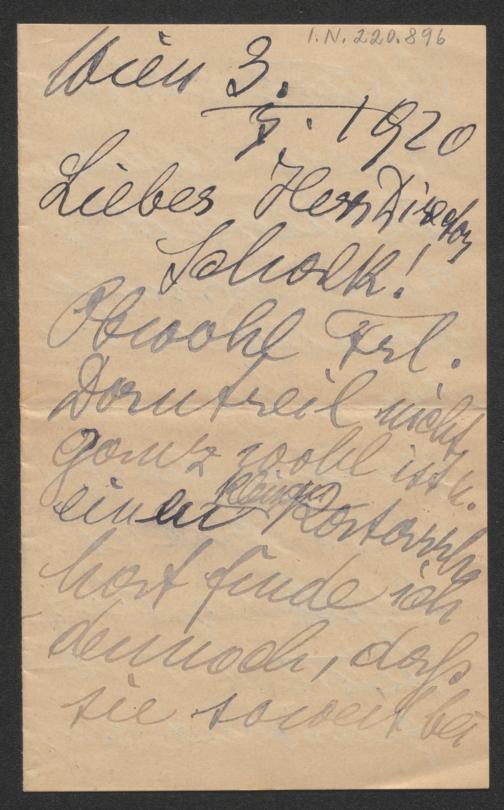 I.N. 220.896
Wien 3.
X. 1920
Lieber Herr Director
Schork!
Obwohl Frl.
Dorntreil nicht
ganz wohl ist u.
kleinen
einen Katarrh
hat finde ich
dennoch, daß
sie soweit bei